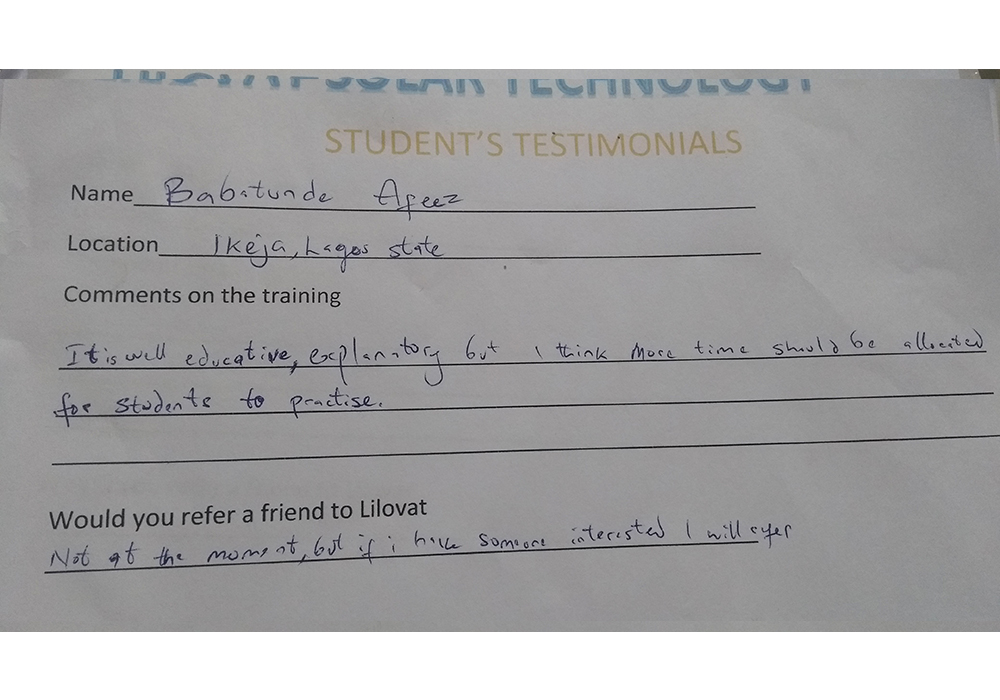 SOLAR TECHNOLOGY
STUDENT'S TESTIMONIALS
Name Babatunde Afeez
Location Ikeja, Lagos state
Comments on the training
It is well educative, explanatory but I think more time should be allocated
for students to practise.
Would you refer a friend to Lilovat
Not at the moment, but if i have someone interested I will refer